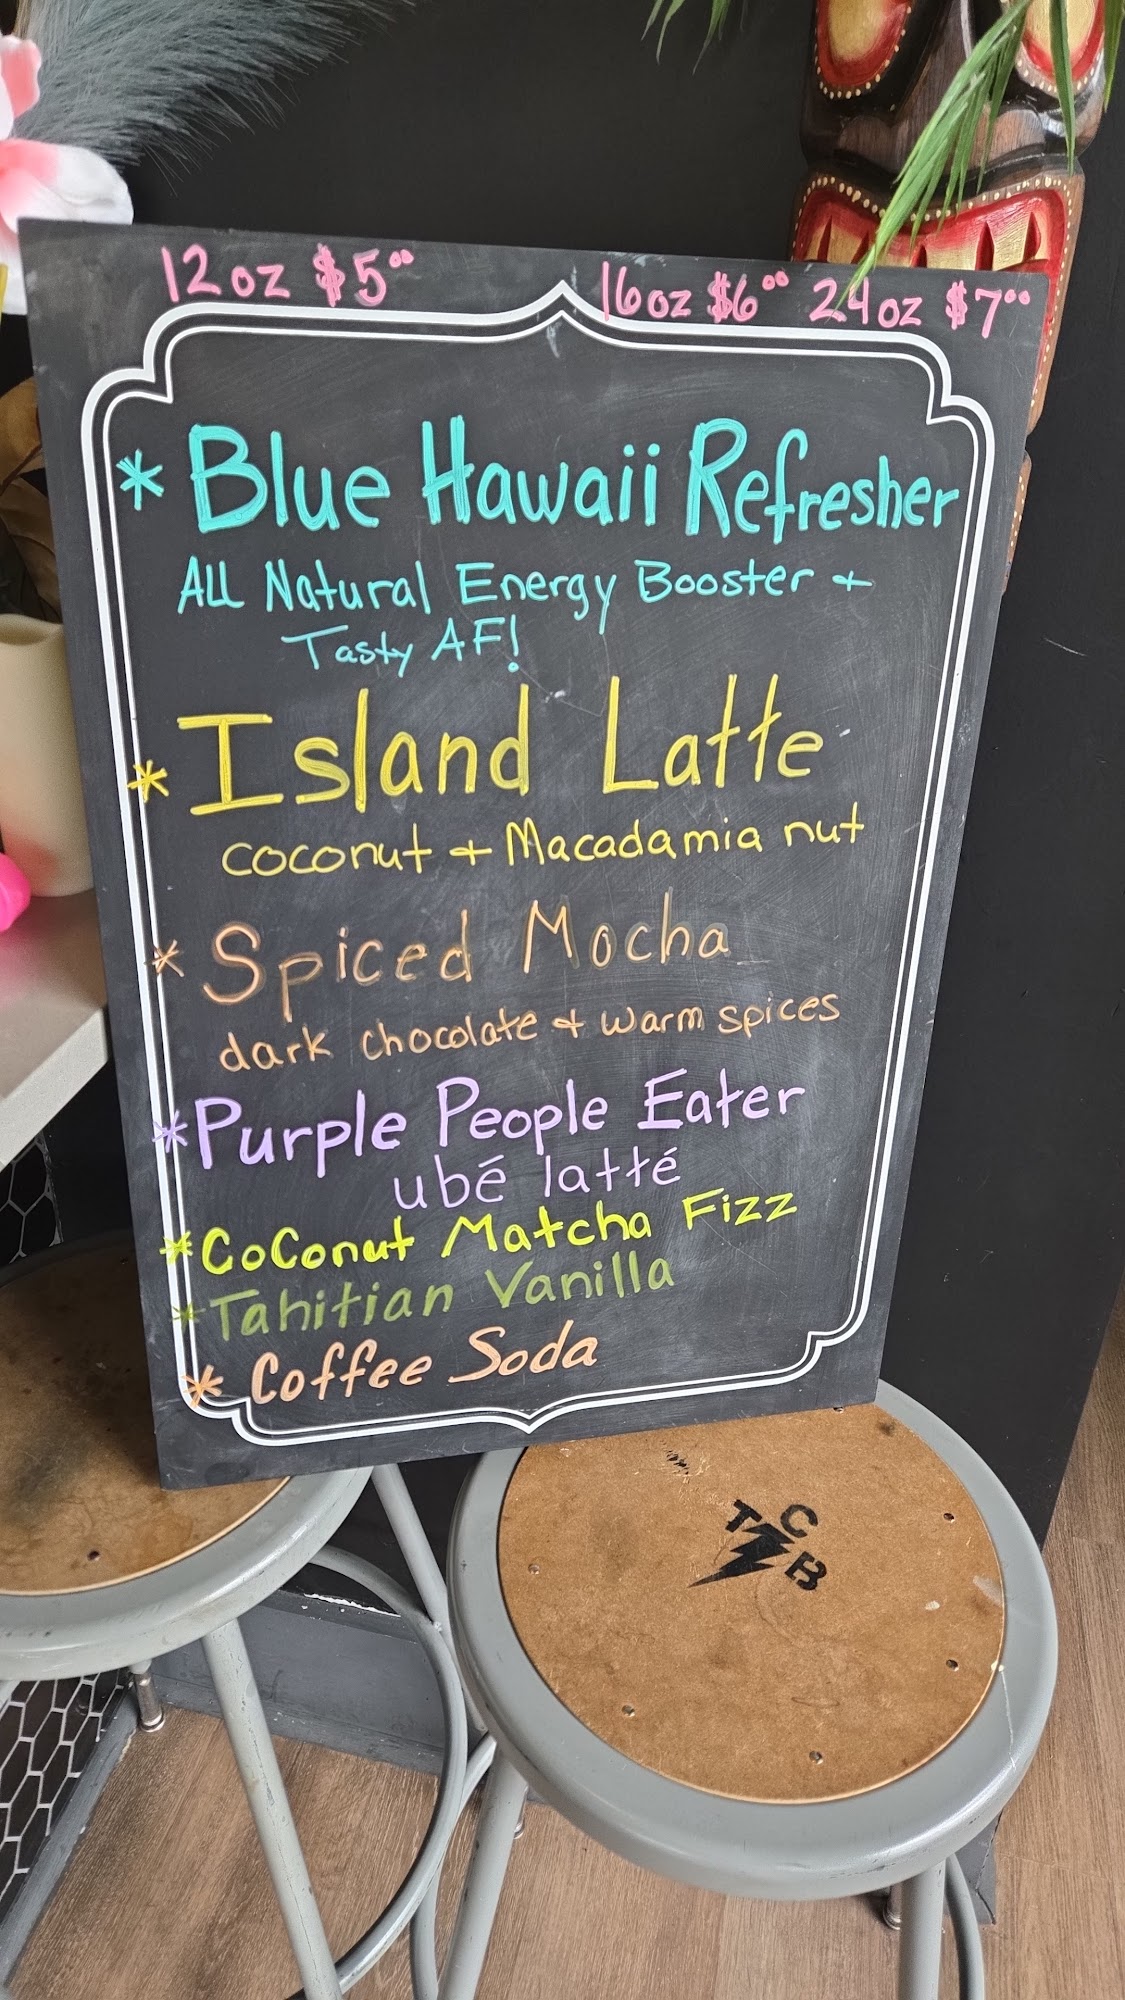 12 oz $5⁰⁰ 16 oz $6⁰⁰ 24 oz $7⁰⁰
* Blue Hawaii Refresher
ALL Natural Energy Booster +
Tasty AF!
* Island Latte
coconut + Macadamia nut
* Spiced Mocha
dark chocolate + warm spices
* Purple People Eater
ubé latté
* CoConut Matcha Fizz
* Tahitian Vanilla
* Coffee Soda
TCB